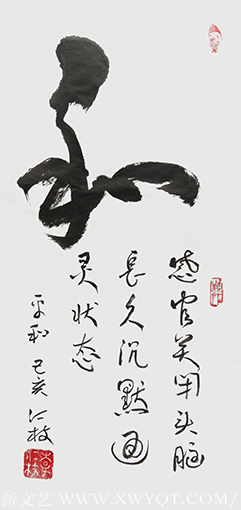 和
感官关闭头脑
长久沉默通
灵状态
平和 己亥 仁枝
新文艺 www.XWYQT.COM